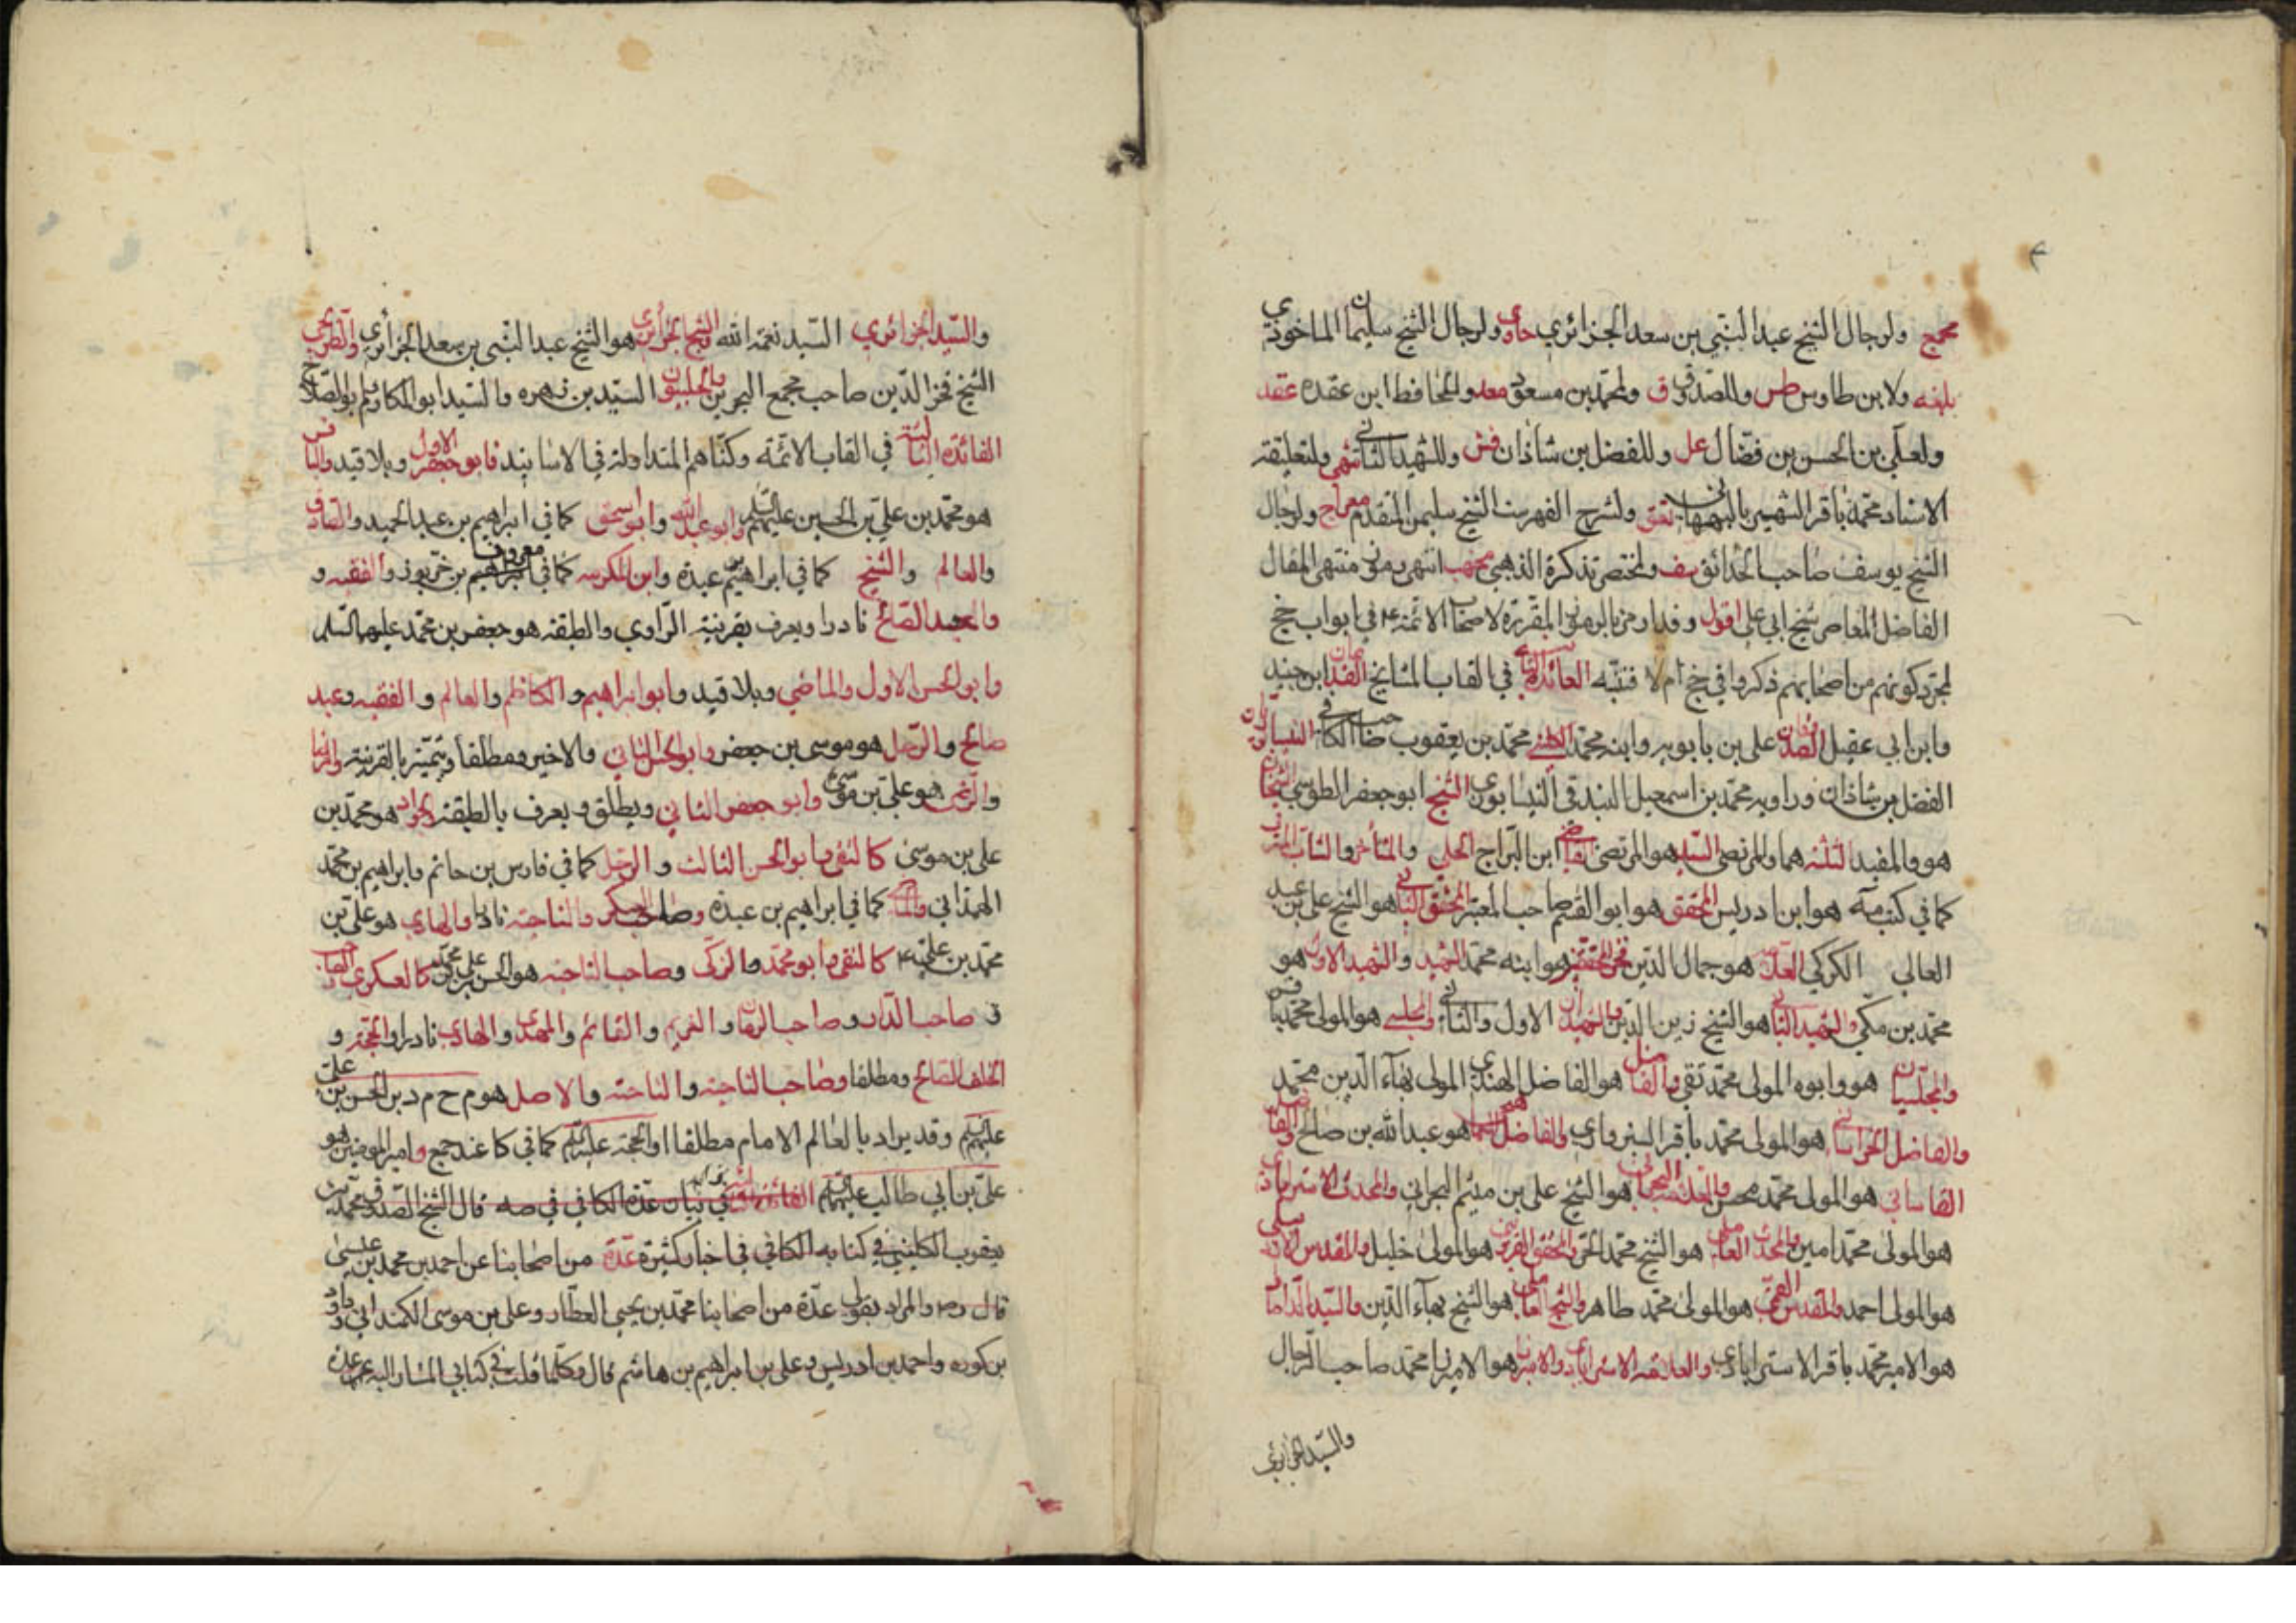 محمج ولرجال الشيخ عبد النبي بن سعد الجزائري حاوي ولرجال الشيخ سليمان الماخوذي
بلغه ولابن طاوس طس وللصدوق ق ولمحمد بن مسعود معد وللحافظ ابن عقده عقد
ولعلي بن الحسن بن فضال عل وللفضل بن شاذان فش وللشهيد الثاني شهي ولتعليقة
الاستاد محمد باقر الشهير بالبهبهاني تعق ولشرح الفهرست الشيخ سليمن المتقدم معراج ولرجال
الشيخ يوسف صاحب الحدائق سف ولمختصر تذكرة الذهبي مخهب انتهى رموز منتهى المقال
الفاضل المعاصر شيخ ابي علي اقول وقد ارمز بالرموز المقررة لاصحاب الائمة ع في ابواب خج
لمجرد كونهم من اصحابهم ذكروا في خج ام لا فتنبه الفائدة الثانية في القاب المشايخ القديمان ابن جنيد
وابن ابي عقيل الصدوقان علي بن بابويه وابنه محمد الكليني محمد بن يعقوب صاحب الكافي النيسابوريان
الفضل بن شاذان وراويه محمد بن اسمعيل البندقي النيسابوري الشيخ ابو جعفر الطوسي الشيخان
هو والمفيد الثلثة هما والمرتضى السيد هو المرتضى القاضي ابن البراج الحلي والمتأخر والشاب المترف
كما في كشف مة هو ابن ادريس المحقق هو ابو القسم صاحب المعتبر المحقق الثاني هو الشيخ علي بن عبد
العالي الكركي العلامة هو جمال الدين فخر المحققين هو ابنه محمد الشهيد والشهيد الاول هو
محمد بن مكي والشهيد الثاني هو الشيخ زين الدين والشهيدان الاول والثاني والمجلسي هو المولى محمد باقر
والمجلسيان هو وابوه المولى محمد تقي والفاضل هو الفاضل الهندي المولى بهاء الدين محمد
والفاضل الخراساني هو المولى محمد باقر السبزواري والفاضل هو عبد الله بن صالح والفاضل
القاساني هو المولى محمد محسن والعلامة البحراني هو الشيخ علي بن ميثم البحراني والمحدث الاسترابادي
هو المولى محمد امين والمحدث العاملي هو الشيخ محمد الحر والمحقق القزويني هو المولى خليل والمقدس الاردبيلي
هو المولى احمد والمقدس القمي هو المولى محمد طاهر والشيخ العاملي هو الشيخ بهاء الدين والسيد الداماد
هو الامير محمد باقر الاسترابادي والعلامة الاسترابادي والاميرزا هو الاميرزا محمد صاحب الرجال
والسيد الجزائري
والسيد الجزائري السيد نعمة الله الشيخ الجزائري هو الشيخ عبد النبي بن سعد الجزائري والطريحي
الشيخ فخر الدين صاحب مجمع البحرين والحلبيون السيد بن زهره والسيد ابو المكارم وابو الصلاح
الفائدة الثالثة في القاب الائمة وكناهم المتداولة في الاسانيد فابو جعفر الاول وبلا قيد والباقر
هو محمد بن علي بن الحسين عليهم السلم وابو عبد الله وابو اسحق كما في ابراهيم بن عبد الحميد والصادق
والعالم والشيخ كما في ابراهيم بن عبدة وابن المكرمة كما في معروف بن خربوذ والفقيه و
والعبد الصالح نادرا ويعرف بقرينة الراوي والطبقة هو جعفر بن محمد عليهما السلم
وابو الحسن الاول والماضي وبلا قيد وابو ابراهيم والكاظم والعالم والفقيه وعبد
صالح والرجل هو موسى بن جعفر وابو الحسن الثاني والاخير ومطلقا ويتميز بالقرينة والرضا
والرضي هو علي بن موسى وابو جعفر الثاني ويطلق ويعرف بالطبقة والجواد هو محمد بن
علي بن موسى كالتقي وابو الحسن الثالث والرجل كما في فارس بن حاتم وابراهيم بن محمد
الهمداني كما في ابراهيم بن عبدة وصاحب العسكر والناحية نادرا والهادي هو علي بن
محمد بن علي ع كالنقي وابو محمد والزكي وصاحب الناحية هو الحسن بن علي بن محمد كالعسكري
صاحب الدار وصاحب الزمان والغريم والقائم والمهدي والهادي نادرا والحجة و
الخلف الصالح ومطلقا وصاحب الناحية والناحية والاصل هو م ح م د بن الحسن بن علي
عليهم السلم وقد يراد بالعالم الامام مطلقا او الحجة عليه السلم كما في كا عند جمع وامير المؤمنين هو
علي بن ابي طالب عليهم السلم الفائدة الرابعة في بيان عدة الكافي في صه قال الشيخ الصدوق محمد بن
يعقوب الكليني في كتابه الكافي في اخبار كثيرة عدة من اصحابنا عن احمد بن محمد بن عيسى
قال ره والمراد بقولي عدة من اصحابنا محمد بن يحيى العطار وعلي بن موسى الكمنداني وداود
بن كوره واحمد بن ادريس وعلي بن ابراهيم بن هاشم قال وكلما قلت في كتابي المشار اليه عدة